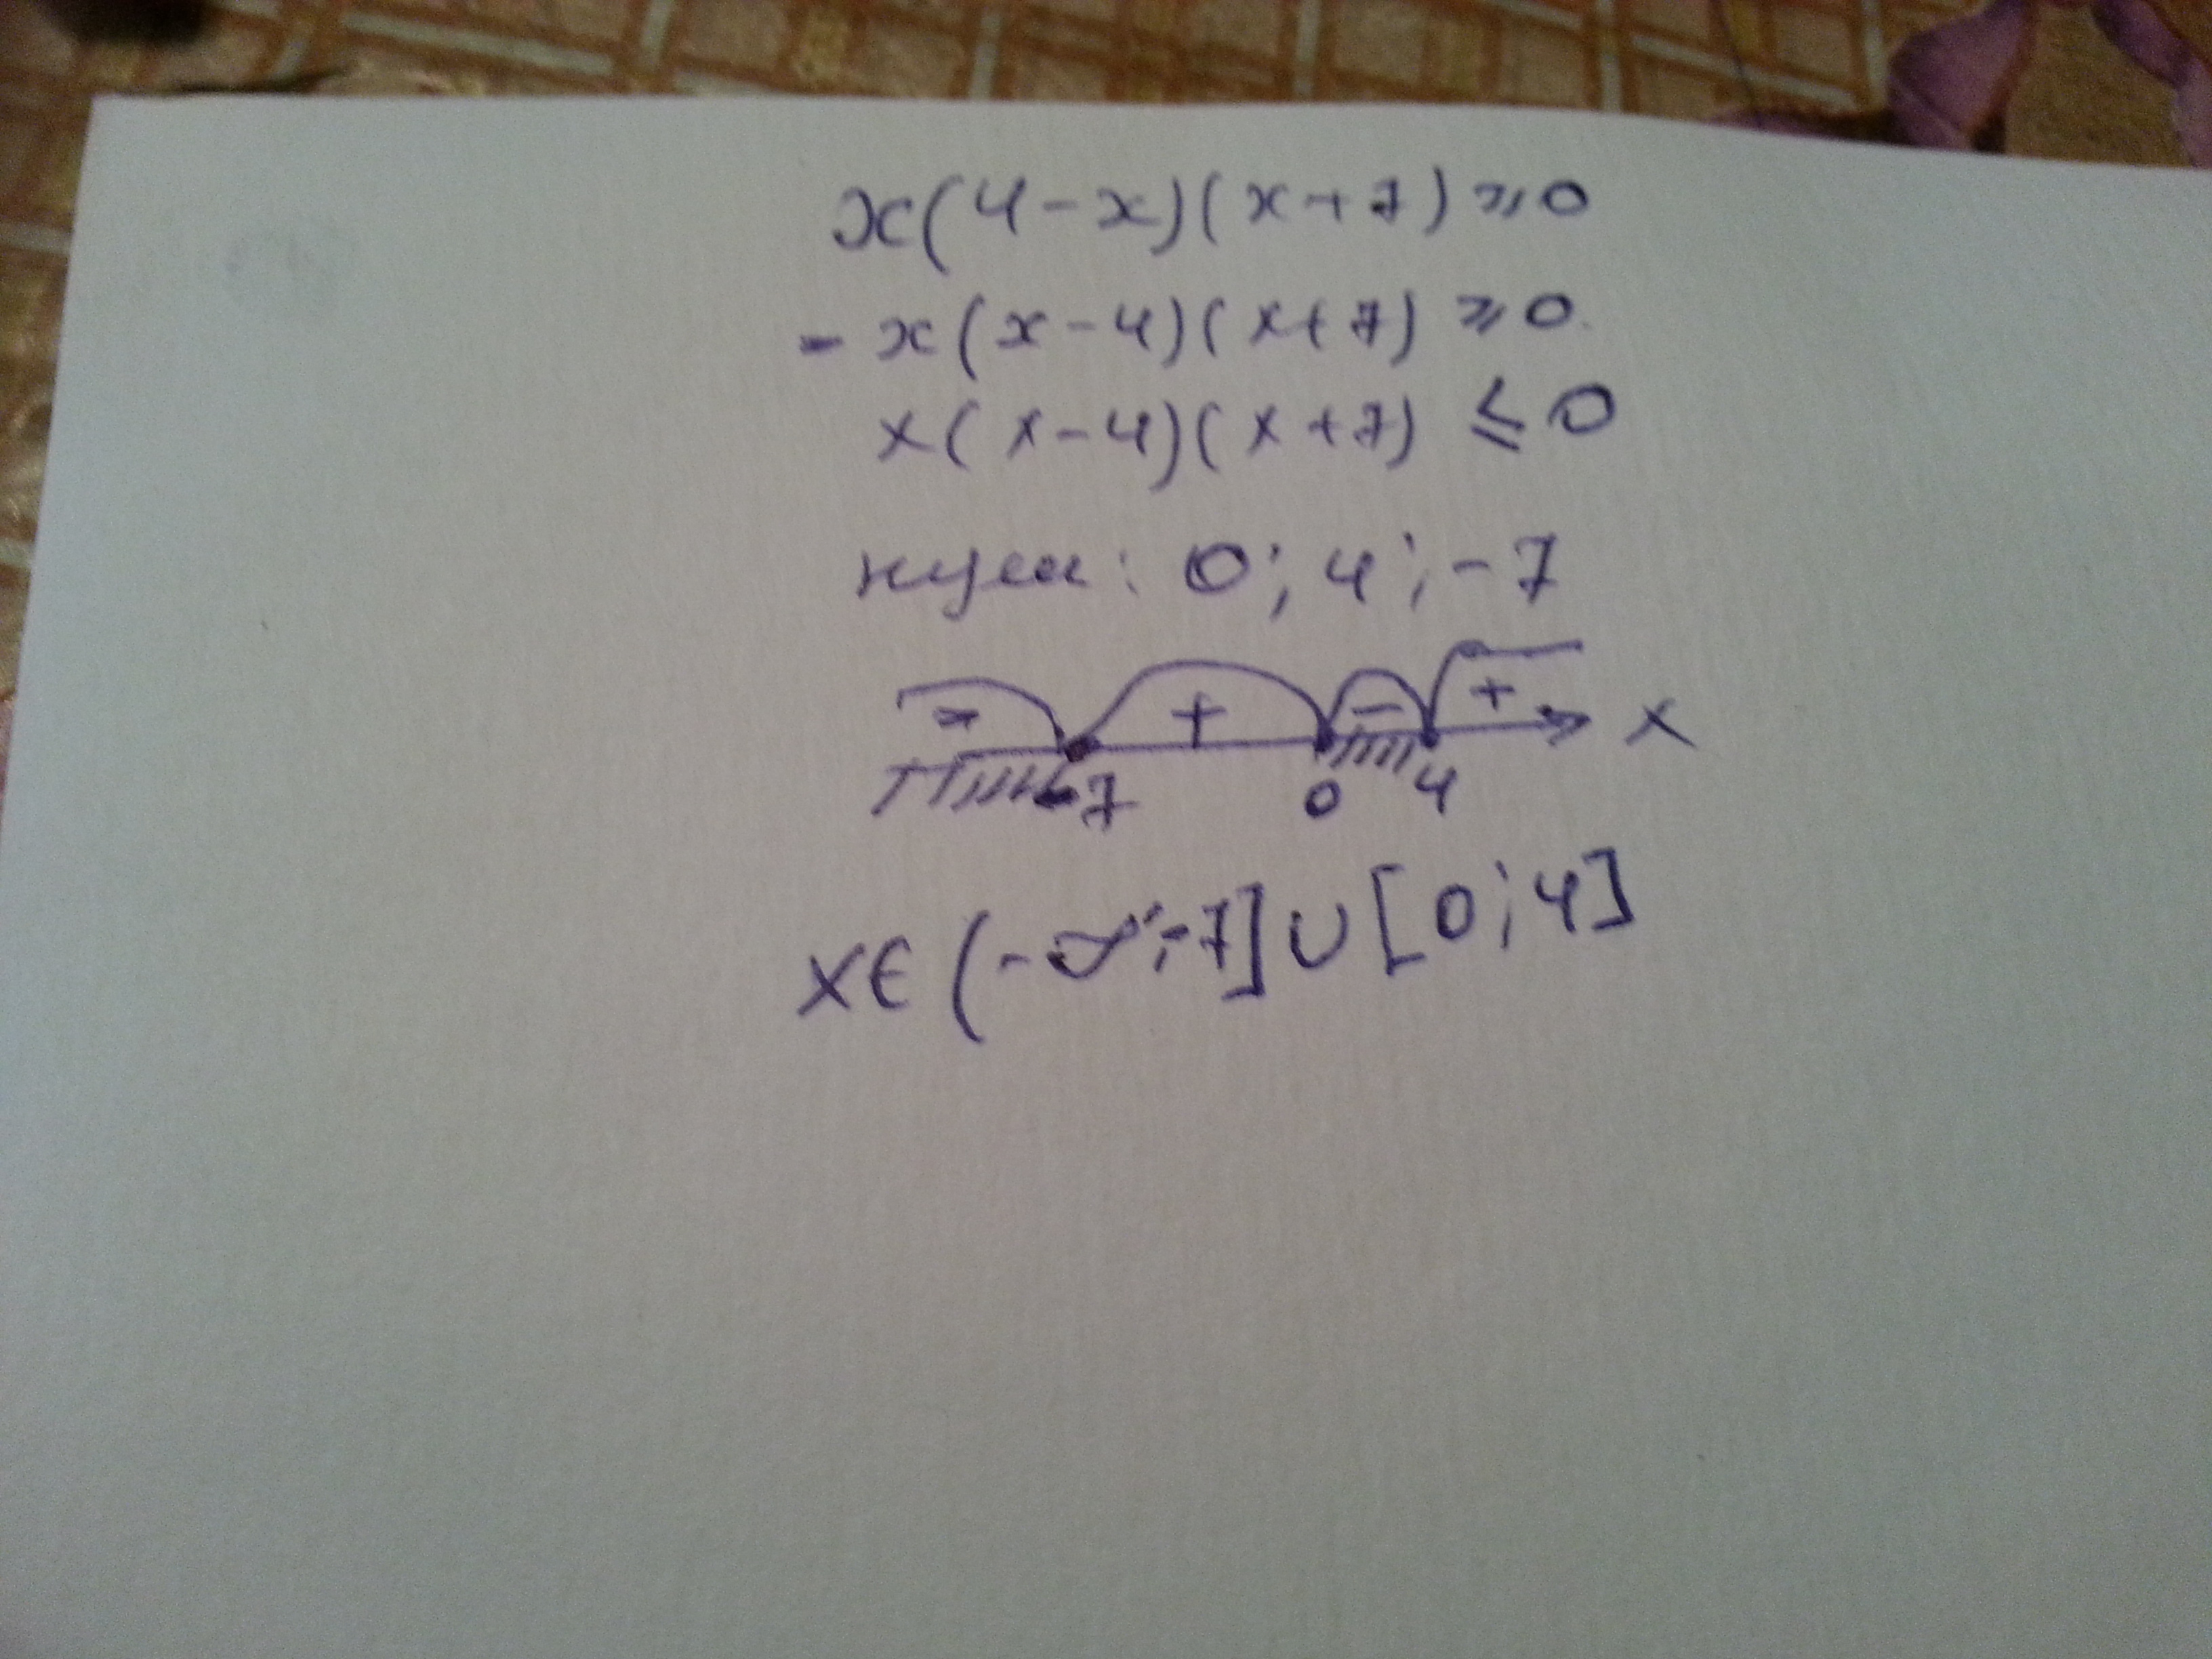 x(4-x)(x+7)⩾0
-x(x-4)(x+7)⩾0
x(x-4)(x+7)≤0
нули: 0; 4; -7
- + - + x
-7 0 4
x∈(-∞;-7]∪[0;4]